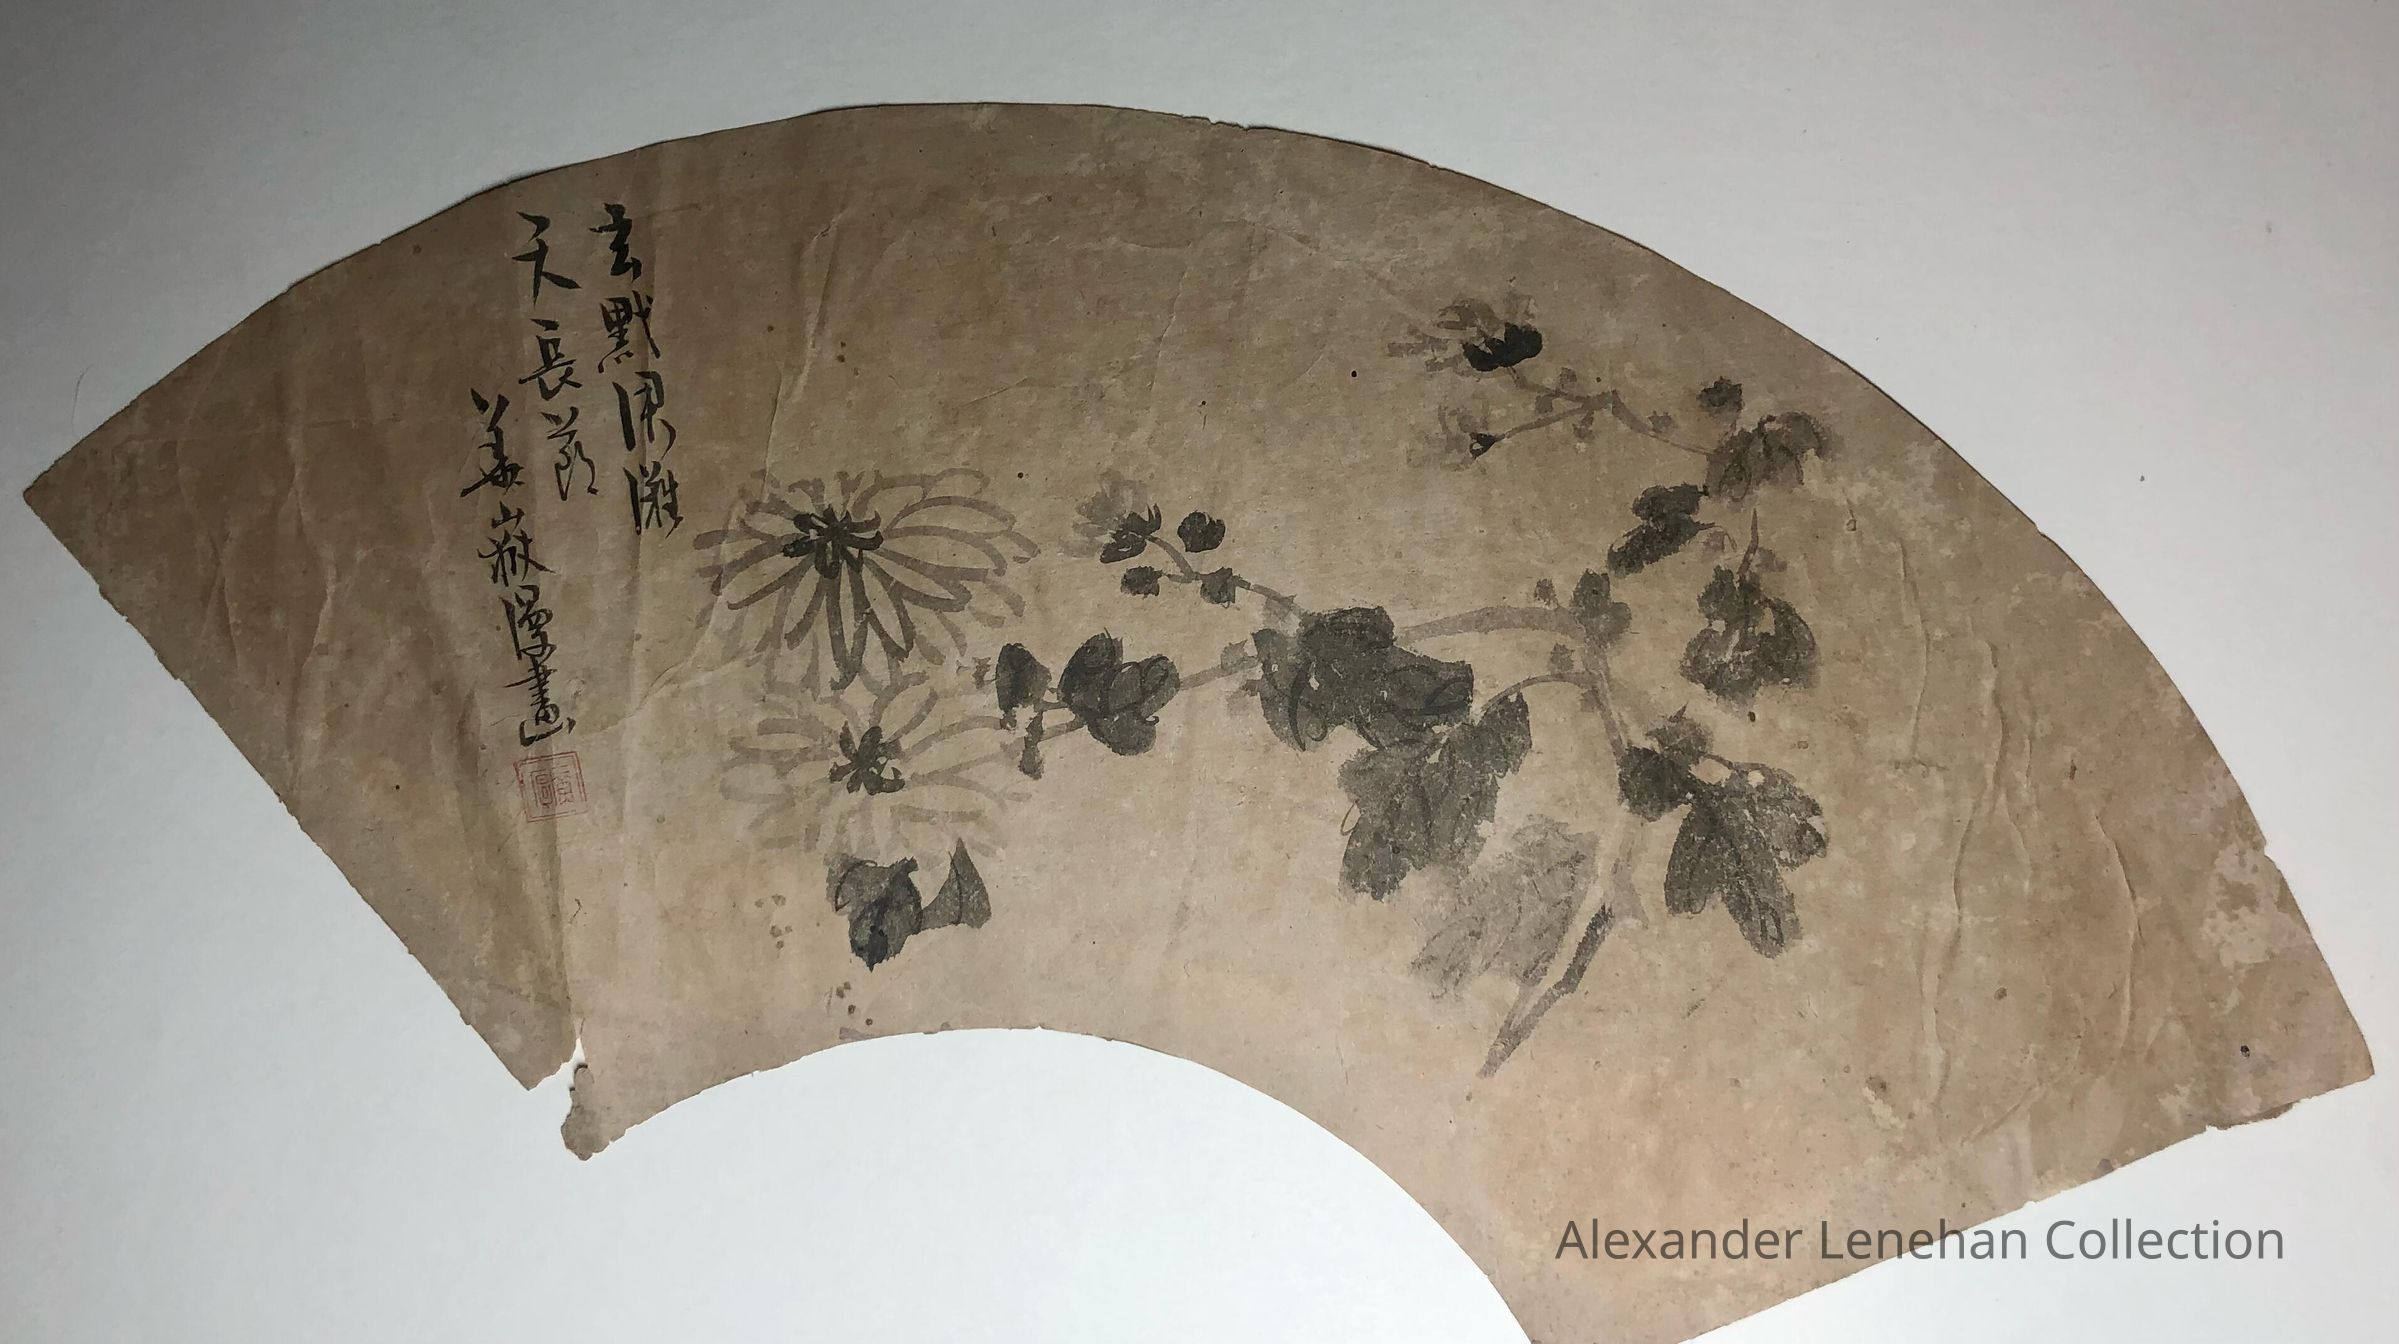 玄黓涒灘
天長節
華嶽漫畫
Alexander Lenehan Collection